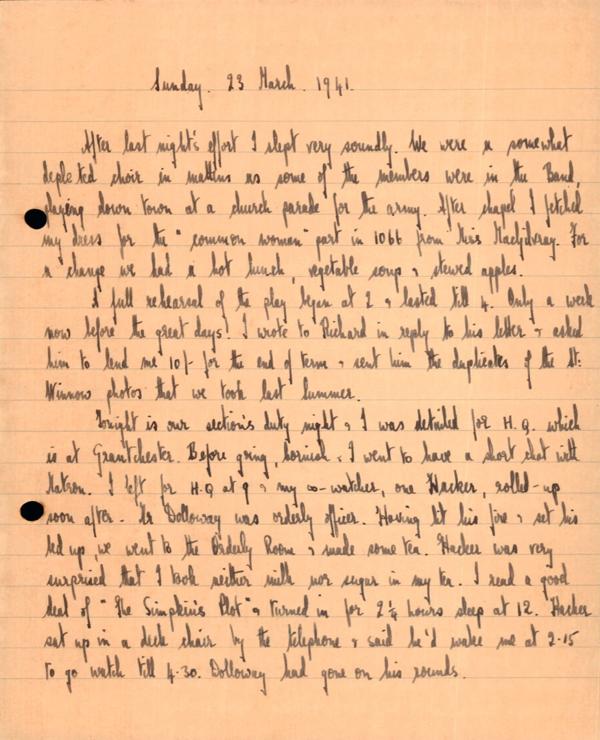 Sunday. 23 March. 1941.
After last night's effort I slept very soundly. We were a somewhat
depleted choir in mattins as some of the members were in the Band,
playing down town at a church parade for the army. After chapel I fetched
my dress for the "common woman" part in 1066 from Miss MacGilvray. For
a change we had a hot lunch, vegetable soup & stewed apples.
A full rehearsal of the play began at 2 & lasted till 4. Only a week
now before the great days. I wrote to Richard in reply to his letter & asked
him to lend me 10/- for the end of term & sent him the duplicates of the St:
Winnow photos that we took last summer.
Tonight is our section's duty night & I was detailed for H.Q. which
is at Grantchester. Before going, Cornish & I went to have a short chat with
Matron. I left for H.Q at 9 & my co-watcher, one Hacker, rolled-up
soon after. Mr Dolloway was orderly officer. Having lit his fire & set his
bed up, we went to the Orderly Room & made some tea. Hacker was very
surprised that I took neither milk nor sugar in my tea. I read a good
deal of "The Simpkins Plot" & turned in for 2 1/4 hours sleep at 12. Hacker
sat up in a deck chair by the telephone & said he'd wake me at 2-15
to go watch till 4-30. Dolloway had gone on his rounds.